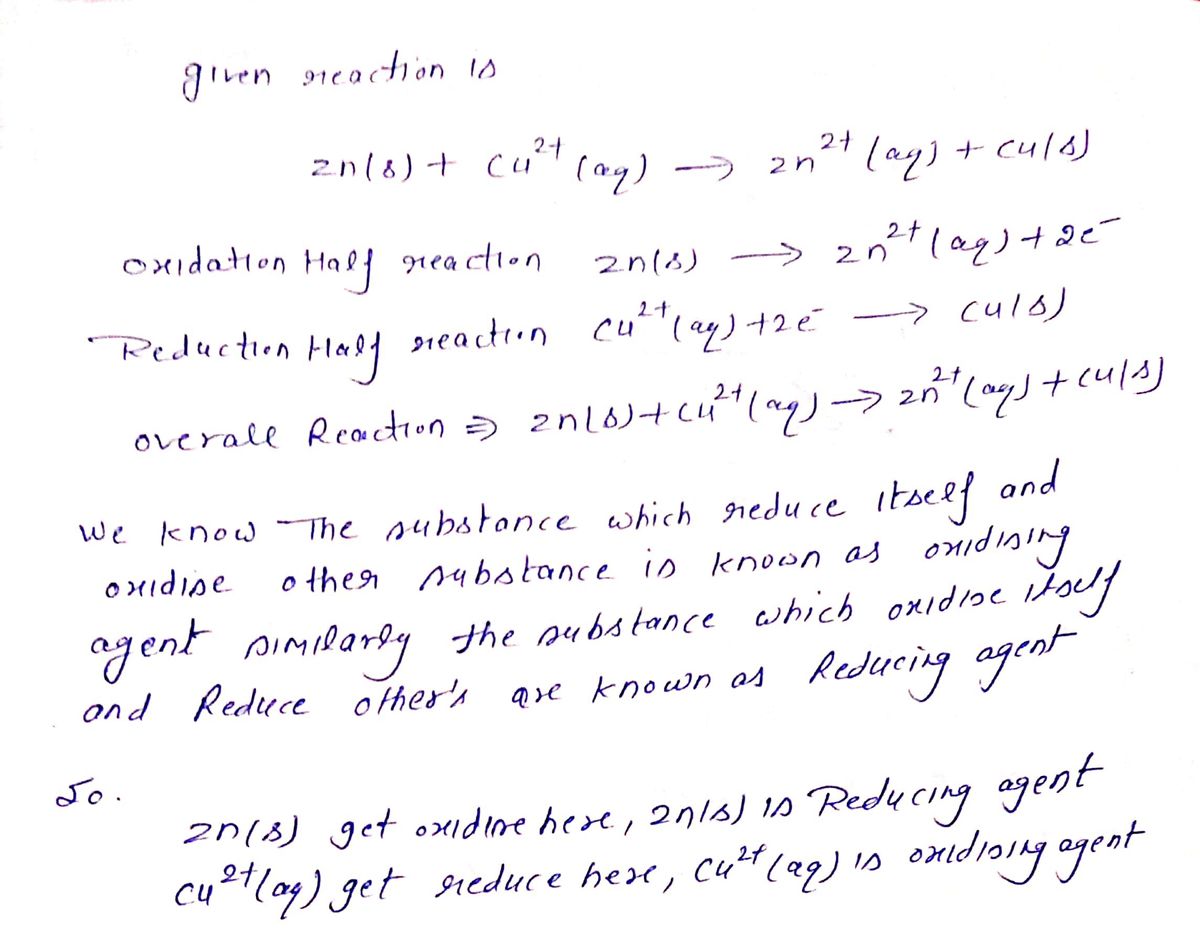 given reaction is
Zn(s) + Cu²⁺ (aq) → Zn²⁺ (aq) + Cu(s)
oxidation Half reaction Zn(s) → Zn²⁺ (aq) + 2e⁻
Reduction Half reaction Cu²⁺(aq) + 2e⁻ → Cu(s)
overall Reaction ⇒ Zn(s) + Cu²⁺(aq) → Zn²⁺(aq) + Cu(s)
we know The substance which reduce itself and
oxidise other substance is known as oxidising
agent similarly the substance which oxidise itself
and Reduce other's are known as Reducing agent
So.
Zn(s) get oxidise here, Zn(s) is Reducing agent
Cu²⁺(aq) get reduce here, Cu²⁺(aq) is oxidising agent